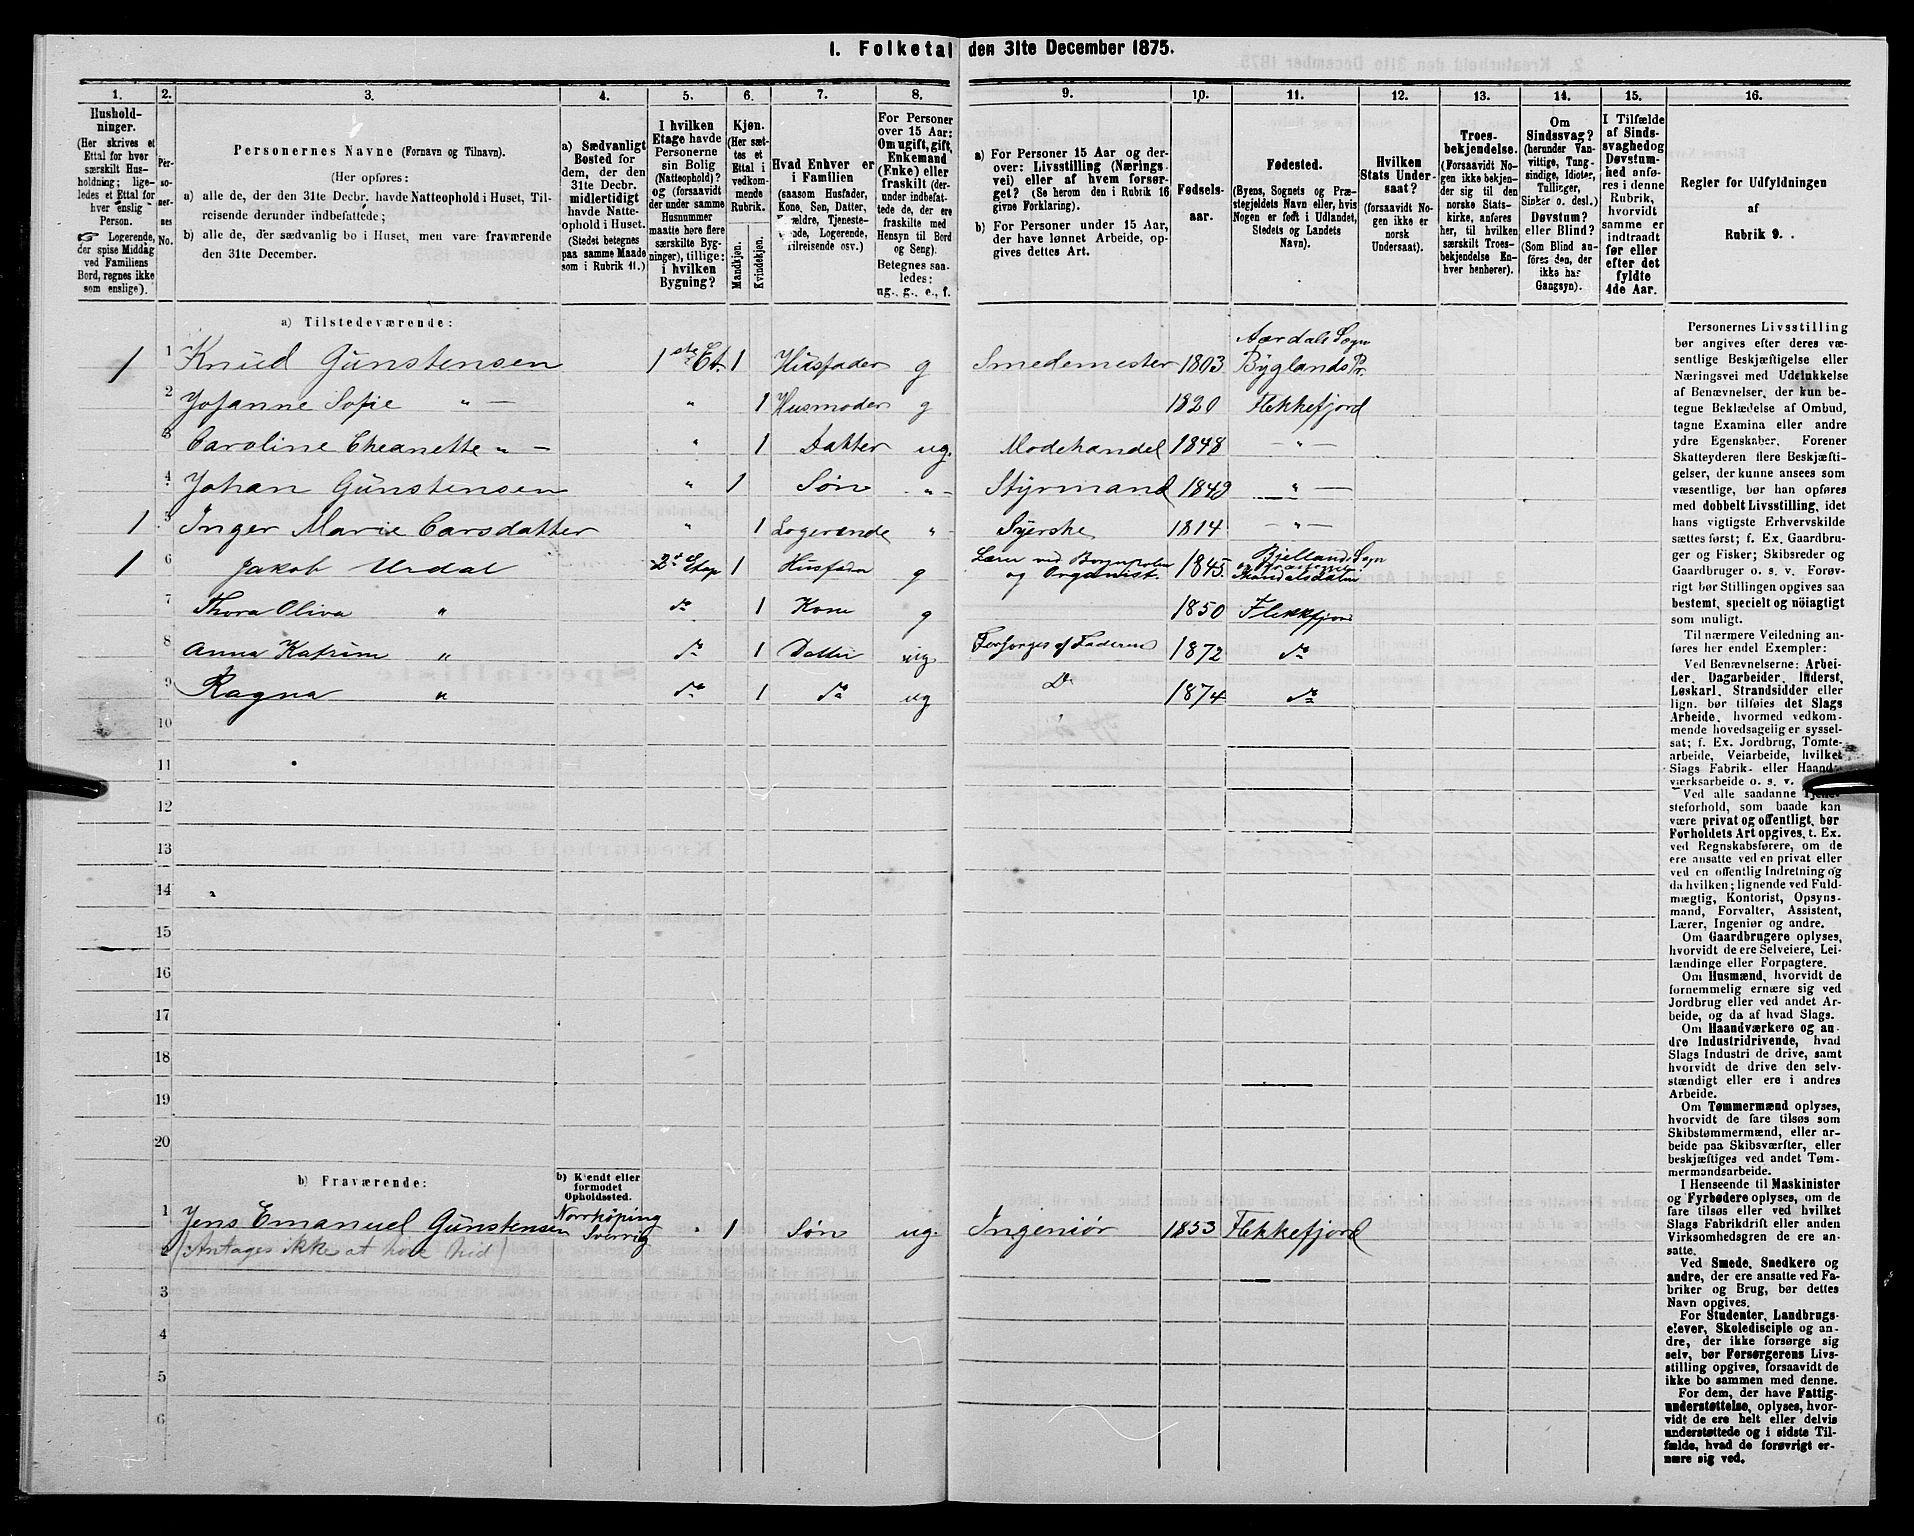 I. Folketal den 31te December 1875.
1. 2. 3. 4. 5. 6. 7. 8. 9. 10. 11. 12. 13. 14. 15. 16.
Hushold-
ninger.
(Her skrives et
Ettal for hver
særskilt Hus-
holdning; lige-
ledes et Ettal for
hver enslig
Person.
☞ Logerende,
der spise Middag
ved Familiens
Bord, regnes ikke
som enslige).
Per-
so-
ner-
nes
No.
Personernes Navne (Fornavn og Tilnavn).
(Her opføres:
a) alle de, der den 31te Decbr. havde Natteophold i Huset, Til-
reisende derunder indbefattede;
b) alle de, der sædvanlig bo i Huset, men vare fraværende
den 31te December.
a) Sædvanligt
Bosted for
dem, der den
31te Decbr.
midlertidigt
havde Natte-
ophold i Huset.
(Stedet betegnes
paa samme Maade
som i Rubrik 11.)
I hvilken
Etage havde
Personerne
sin Bolig
(Natteophold)?
og (forsaavidt
der under samme
Husnummer
maatte høre flere
særskilte Byg-
ninger), tillige:
i hvilken
Bygning?
Kjøn.
(Her sæt-
tes et
Ettal i
vedkom-
mende
Rubrik.
Mandkjøn.
Kvindekjøn.
Hvad Enhver er
i Familien
(saasom Husfader,
Kone, Søn, Datter,
Forældre, Tjeneste-
tyende, Logerende,
Tilreisende osv.)
For Personer
over 15 Aar:
Om ugift, gift,
Enkemand
(Enke) eller
fraskilt (der-
under indbefat-
tede de, der ere
fraskilte med
Hensyn til Bord
og Seng).
Betegnes saa-
ledes:
ug., g., e., f.
a) For Personer 15 Aar og der-
over: Livsstilling (Nærings-
vei) eller af hvem forsør-
get? (Se herom den i Rubrik 16
givne Forklaring).
b) For Personer under 15 Aar,
der have lønnet Arbeide, op-
gives dettes Art.
Fødsels-
aar.
Fødested.
(Byens, Sognets og Præ-
stegjeldets Navn eller, hvis
Nogen er født i Udlandet,
Stedets og Landets
Navn).
Hvilken
Stats Under-
saat?
(forsaavidt No-
gen ikke er
norsk
Undersaat).
Troes-
bekjendelse.
(Forsaavidt No-
gen ikke bekjen-
der sig til den
norske Stats-
kirke, anføres
her, til hvilken
særskilt Troes-
bekjendelse En-
hver henhører).
Om
Sindssvag?
(herunder Van-
vittige, Tung-
sindige, Idioter,
Tullinger,
Sinker o. desl.)
Døvstum?
eller Blind?
(Som Blind an-
føres den, der
ikke har
Gangsyn).
I Tilfælde
af Sinds-
svaghed og
Døvstum-
hed anfø-
res i denne
Rubrik,
hvorvidt
samme er
indtraadt
før eller
efter det
fyldte
4de Aar.
Regler for Udfyldningen
af
Rubrik 9.
a) Tilstedeværende:
1 1 Knud Gunstensen 1ste Et. 1 Husfader g Smedemester 1803 Aardals Sogn Byglands Pr.
2 Johanne Sofie „ — „ 1 Husmoder g 1820 Flekkefjord
3 Caroline Theanette „ — „ 1 Datter ug. Modehandel 1848 — „ —
4 Johan Gunstensen „ 1 Søn „ Styrmand 1849 „ —
1 5 Inger Marie Carsdatter „ 1 Logerende „ Syerske 1814 — „ —
1 6 Jakob Urdal 2d Etap 1 Husfader g Lærer ved Borgerskolen og Organist. 1845. Bjelland Sogn og Præstegjeld Mandalsdalen
7 Thora Oliva „ do 1 Kone g 1850 Flekkefjord
8 Anna Katrine „ do 1 Datter ug Forsørges af Faderen 1872 do
9 Ragna „ do 1 do ug Do 1874 do
10
11
12
13
14
15
16
17
18
19
20
b) Fraværende:
b) Kjendt eller
formodet
Opholdssted.
1 Jens Emanuel Gunstensen Norrköping Sverrig „ 1 Søn ug. Ingeniør 1853 Flekkefjord
2 (Antages ikke at höre hid)
3
4
5
6
Personernes Livsstilling
bør angives efter deres væ-
sentlige Beskjæftigelse eller
Næringsvei med Udelukkelse
af Benævnelser, der kun be-
tegne Beklædelse af Ombud,
tagne Examina eller andre
ydre Egenskaber. Forener
Skatteyderen flere Beskjæfti-
gelser, der kunne ansees som
væsentlige, bør han opføres
med dobbelt Livsstilling, idet
hans vigtigste Erhvervskilde
sættes først; f. Ex. Gaardbru-
ger og Fisker; Skibsreder og
Gaardbruger o. s. v. Forøv-
rigt bør Stillingen opgives saa
bestemt, specielt og nöiagtigt
som muligt.
Til nærmere Veiledning an-
føres her endel Exempler:
Ved Benævnelserne: Arbei-
der, Dagarbeider, Inderst,
Løskarl, Strandsidder eller
lign. bør tilføies det Slags
Arbeide, hvormed vedkom-
mende hovedsagelig er syssel-
sat; f. Ex. Jordbrug, Tomte-
arbeide, Veiarbeide, hvilket
Slags Fabrik- eller Haand-
værksarbeide o. s. v.
Ved alle saadanne Tjene-
steforhold, som baade kan
være privat og offentligt, bør
Forholdets Art opgives, t. Ex.
ved Regnskabsførere, om de
ere ansatte ved en privat eller
ved en offentlig Indretning og
da hvilken; lignende ved Fuld-
mægtig, Kontorist, Opsyns-
mand, Forvalter, Assistent,
Lærer, Ingeniør og andre.
Om Gaardbrugere oplyses,
hvorvidt de ere Selveiere, Lei-
lændinge eller Forpagtere.
Om Husmænd, hvorvidt de
fornemmelig ernære sig ved
Jordbrug eller ved andet Ar-
beide, og da af hvad Slags.
Om Haandværkere og an-
dre Industridrivende, hvad
Slags Industri de drive, samt
hvorvidt de drive den selv-
stændigt eller ere i andres
Arbeide.
Om Tømmermænd oplyses,
hvorvidt de fare tilsøs som
Skibstømmermænd, eller ar-
beide paa Skibsværfter, eller
beskjæftiges ved andet Tøm-
mermandsarbeide.
I Henseende til Maskinister
og Fyrbødere oplyses, om de
fare tilsøs eller ved hvilket
Slags Fabrikdrift eller anden
Virksomhedsgren de ere an-
satte.
Ved Smede, Snedkere og
andre, der ere ansatte ved Fa-
briker og Brug, bør dettes
Navn opgives.
For Studenter, Landbrugs-
elever, Skoledisciple og an-
dre, der ikke forsørge sig
selv, bør Forsørgerens Livs-
stilling opgives, forsaavidt de
ikke bo sammen med denne.
For dem, der have Fattig-
understøttelse, oplyses, hvor-
vidt de ere helt eller delvis
understøttede og i sidste Til-
fælde, hvad de forøvrigt er-
nære sig ved.